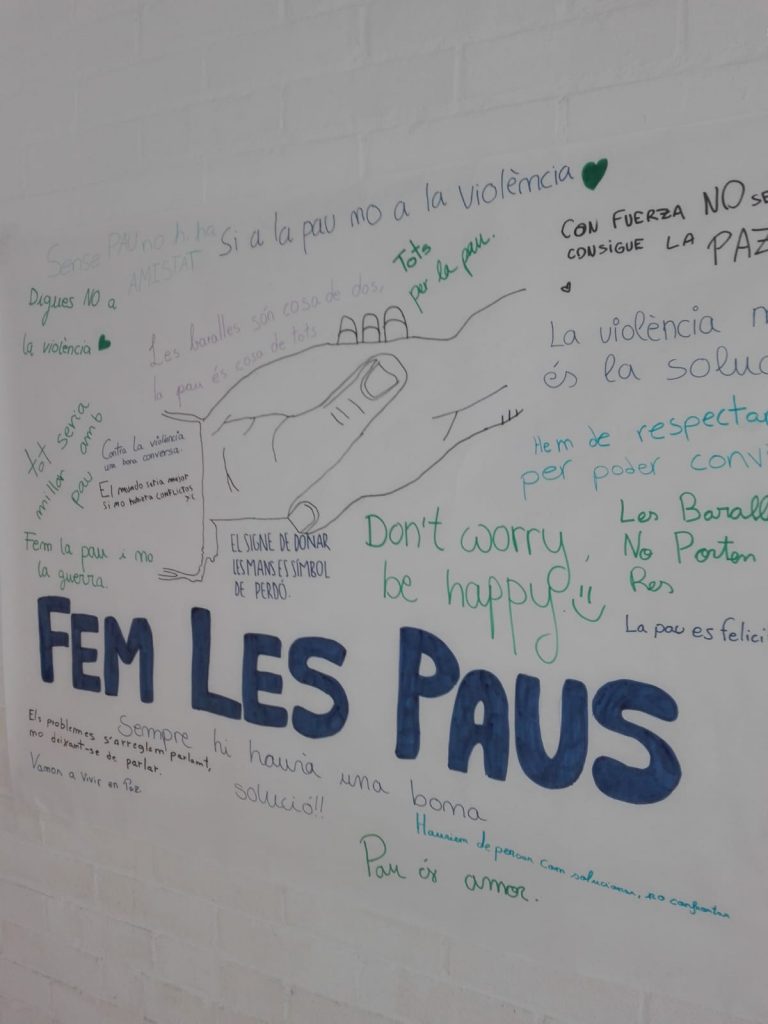 Sense PAU no h, ha
AMISTAT
Si a la pau no a la violència
CON FUERZA NO SE
CONSIGUE LA PAZ
Tots
per la pau.
Digues NO a
la violència
Les baralles són cosa de dos,
la pau és cosa de tots
La violència
és la soluc
tot seria
millor amb
pau
Contra la violència
una bona conversa.
El mundo seria mejor
si no hubiera conflictos
Hem de respectar
per poder convi
Fem la pau i no
la guerra.
EL SIGNE DE DONAR
LES MANS ES SÍMBOL
DE PERDÓ.
Don't worry,
be happy!!
Les Barall
No Porten
Res
La pau es felici
FEM LES PAUS
Els problemes s'arreglem parlamt,
mo deixant-se de parlar.
Vamon a Vivir en Paz
Sempre hi hauria una bona
solució!!
Hauriem de pensar com solucionar, no confrontar
Pau és amor.